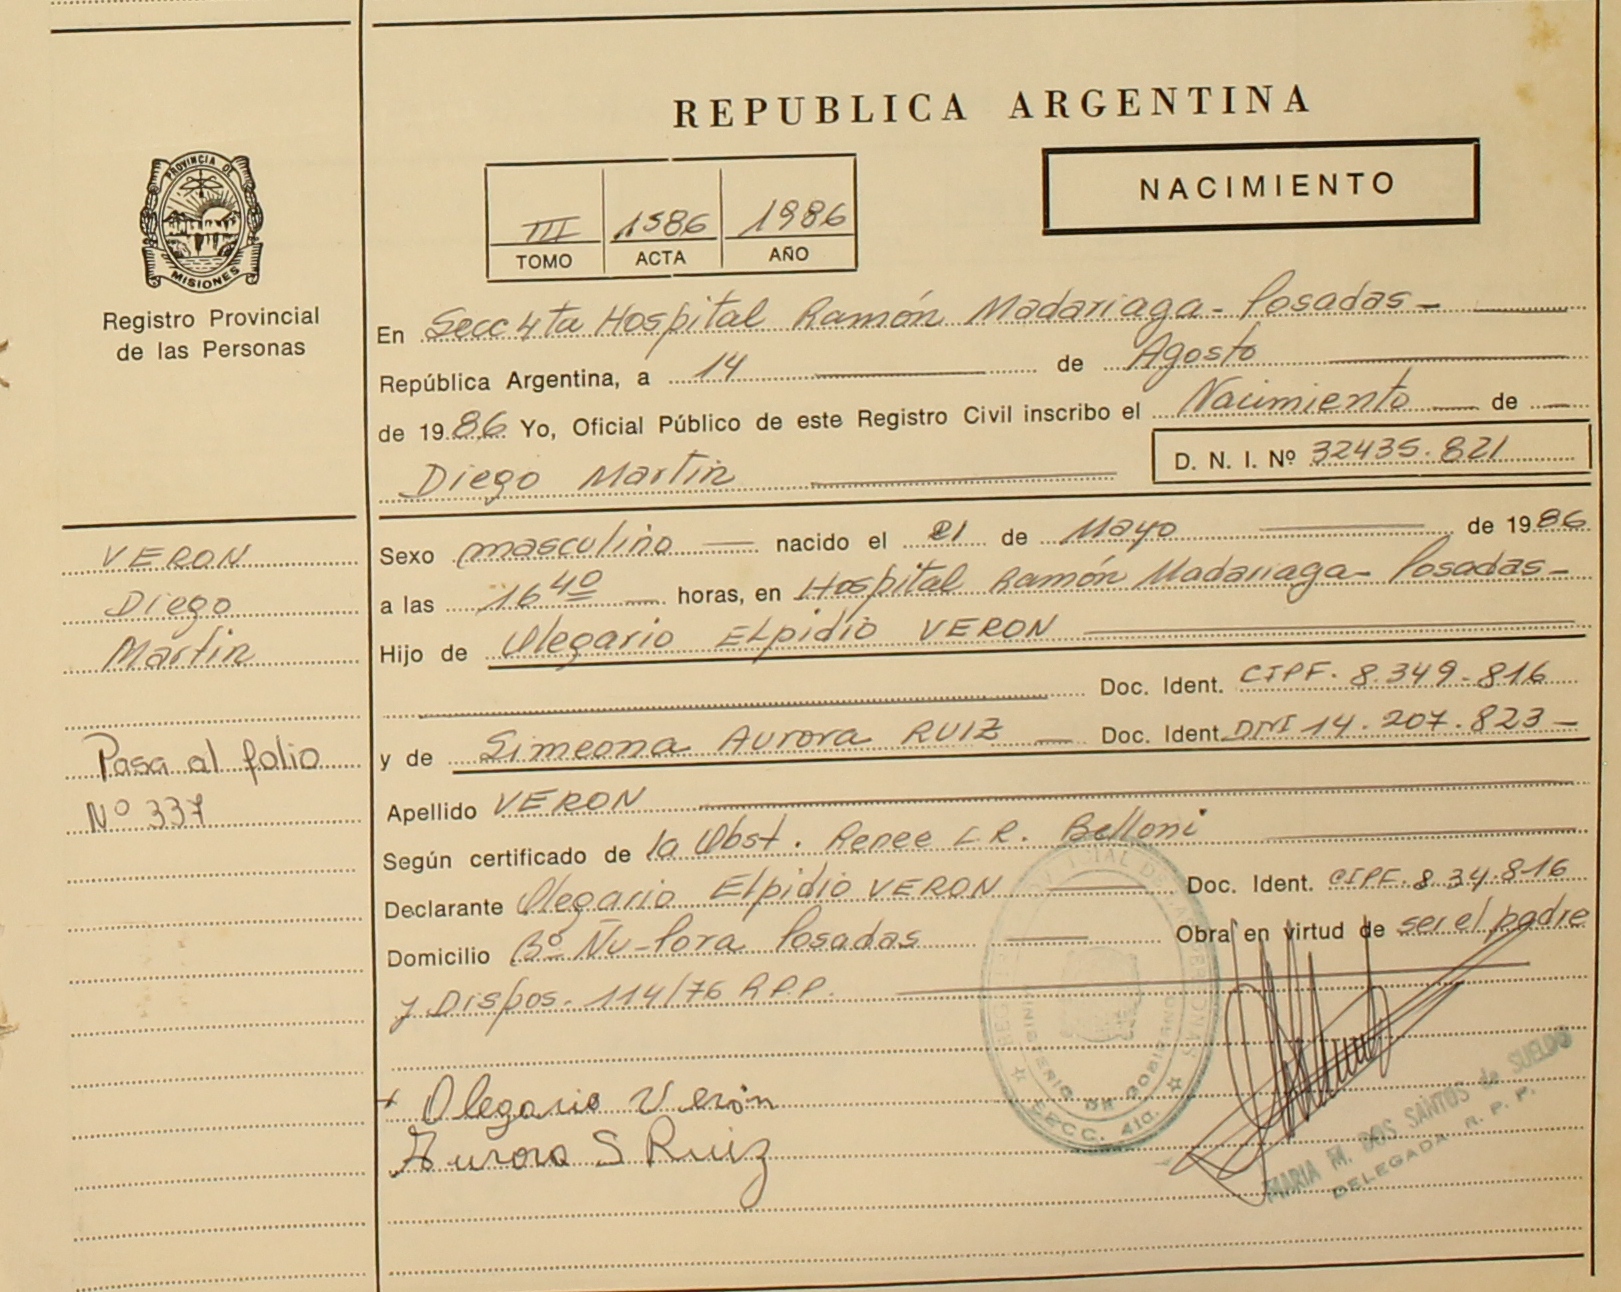 REPUBLICA ARGENTINA
NACIMIENTO
III 1586 1986
TOMO ACTA AÑO
PROVINCIA DE
MISIONES
Registro Provincial
de las Personas
En Secc 4ta Hospital Ramón Madariaga - Posadas -
República Argentina, a 14 de Agosto
de 1986 Yo, Oficial Público de este Registro Civil inscribo el Nacimiento de
Diego Martin D. N. I. Nº 32435.821
VERON
Diego
Martin
Pasa al folio
Nº 337
Sexo masculino nacido el 21 de Mayo de 1986
a las 16 40 horas, en Hospital Ramón Madariaga - Posadas -
Hijo de Olegario ELpidio VERON
Doc. Ident. CIPF. 8.349.816
y de Simeona Aurora RUIZ Doc. Ident. DNI 14.207.823 -
Apellido VERON
Según certificado de la Obst. Renee L.R. Belloni
Declarante Olegario Elpidio VERON Doc. Ident. CIPF. 8.34.816
Domicilio Bº Ñu-Pora Posadas Obra en virtud de ser el padre
y Dispos. 114/76 R.P.P.
Olegario Verón
Aurora S Ruiz
SECC. 4ta.
MARIA M. DOS SANTOS de SUELDO
DELEGADA R. P. P.